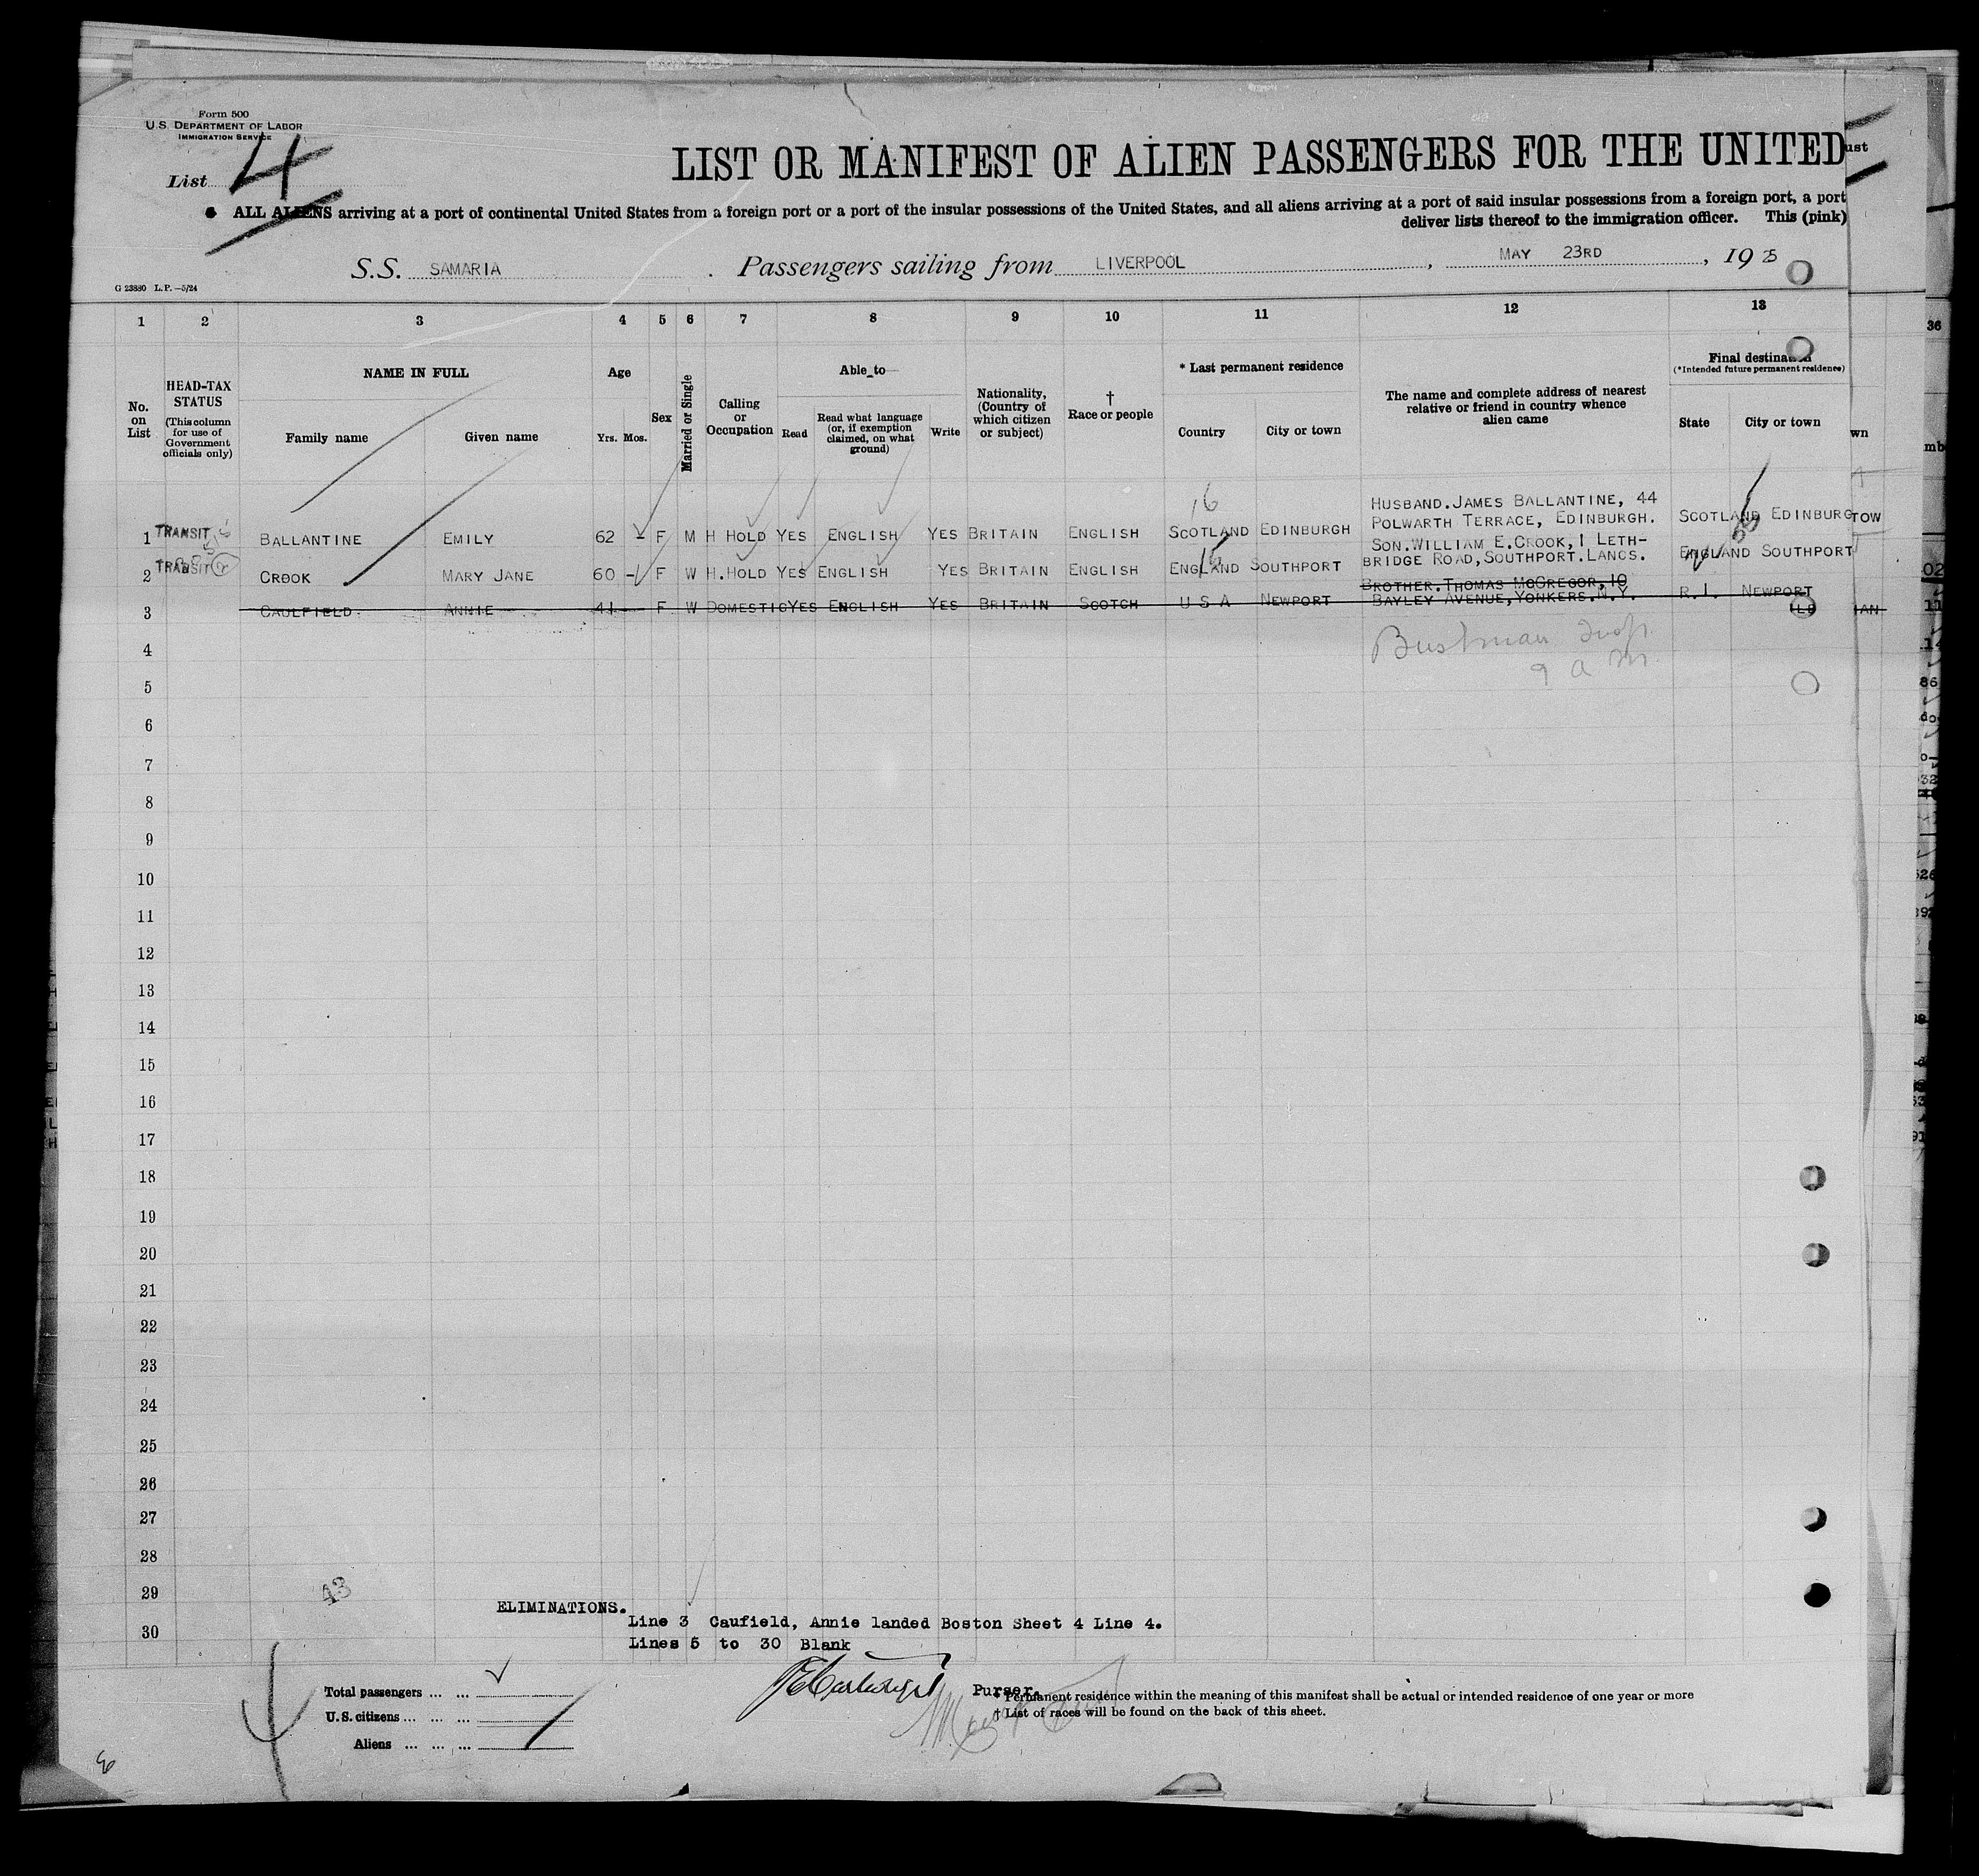 Form 500
U.S. DEPARTMENT OF LABOR
IMMIGRATION SERVICE
List 4
LIST OR MANIFEST OF ALIEN PASSENGERS FOR THE UNITED
ust
ALL ALIENS arriving at a port of continental United States from a foreign port or a port of the insular possessions of the United States, and all aliens arriving at a port of said insular possessions from a foreign port, a port
deliver lists thereof to the immigration officer. This (pink)
S.S. SAMARIA . Passengers sailing from LIVERPOOL , MAY 23RD , 1925
G 23880 L.P.—5/24
1 2 3 4 5 6 7 8 9 10 11 12 13 36
No. on List
HEAD-TAX STATUS (This column for use of Government officials only)
NAME IN FULL
Family name Given name
Age
Yrs. Mos.
Sex
Married or Single
Calling or Occupation
Able to
Read
Read what language (or, if exemption claimed, on what ground)
Write
Nationality, (Country of which citizen or subject)
† Race or people
* Last permanent residence
Country City or town
The name and complete address of nearest relative or friend in country whence alien came
Final destination
(*Intended future permanent residence)
State City or town
wn
16
1 TRANSIT BALLANTINE EMILY 62 - F M H HOLD YES ENGLISH YES BRITAIN ENGLISH SCOTLAND EDINBURGH HUSBAND.JAMES BALLANTINE, 44 POLWARTH TERRACE, EDINBURGH. SCOTLAND EDINBURG
TOW
2 TRANSIT CROOK MARY JANE 60 - F W H.HOLD YES ENGLISH YES BRITAIN ENGLISH ENGLAND SOUTHPORT SON.WILLIAM E.CROOK,1 LETH-BRIDGE ROAD,SOUTHPORT.LANCS. ENGLAND SOUTHPORT
3 CAULFIELD ANNIE 41 F W DOMESTIC YES ENGLISH YES BRITAIN SCOTCH U S A NEWPORT BROTHER.THOMAS MCGREGOR,10 BAYLEY AVENUE,YONKERS.N.Y. R.I. NEWPORT
IAN
9 a m
4
5
6
7
8
9
10
11
12
13
14
15
16
17
18
19
20
21
22
23
24
25
26
27
28
29
30
43
ELIMINATIONS.
Line 3 Caufield, Annie landed Boston Sheet 4 Line 4.
Lines 5 to 30 Blank
Purser.
Total passengers ... ...
U.S. citizens ... ... ...
Aliens ... ... ...
* Permanent residence within the meaning of this manifest shall be actual or intended residence of one year or more
† List of races will be found on the back of this sheet.